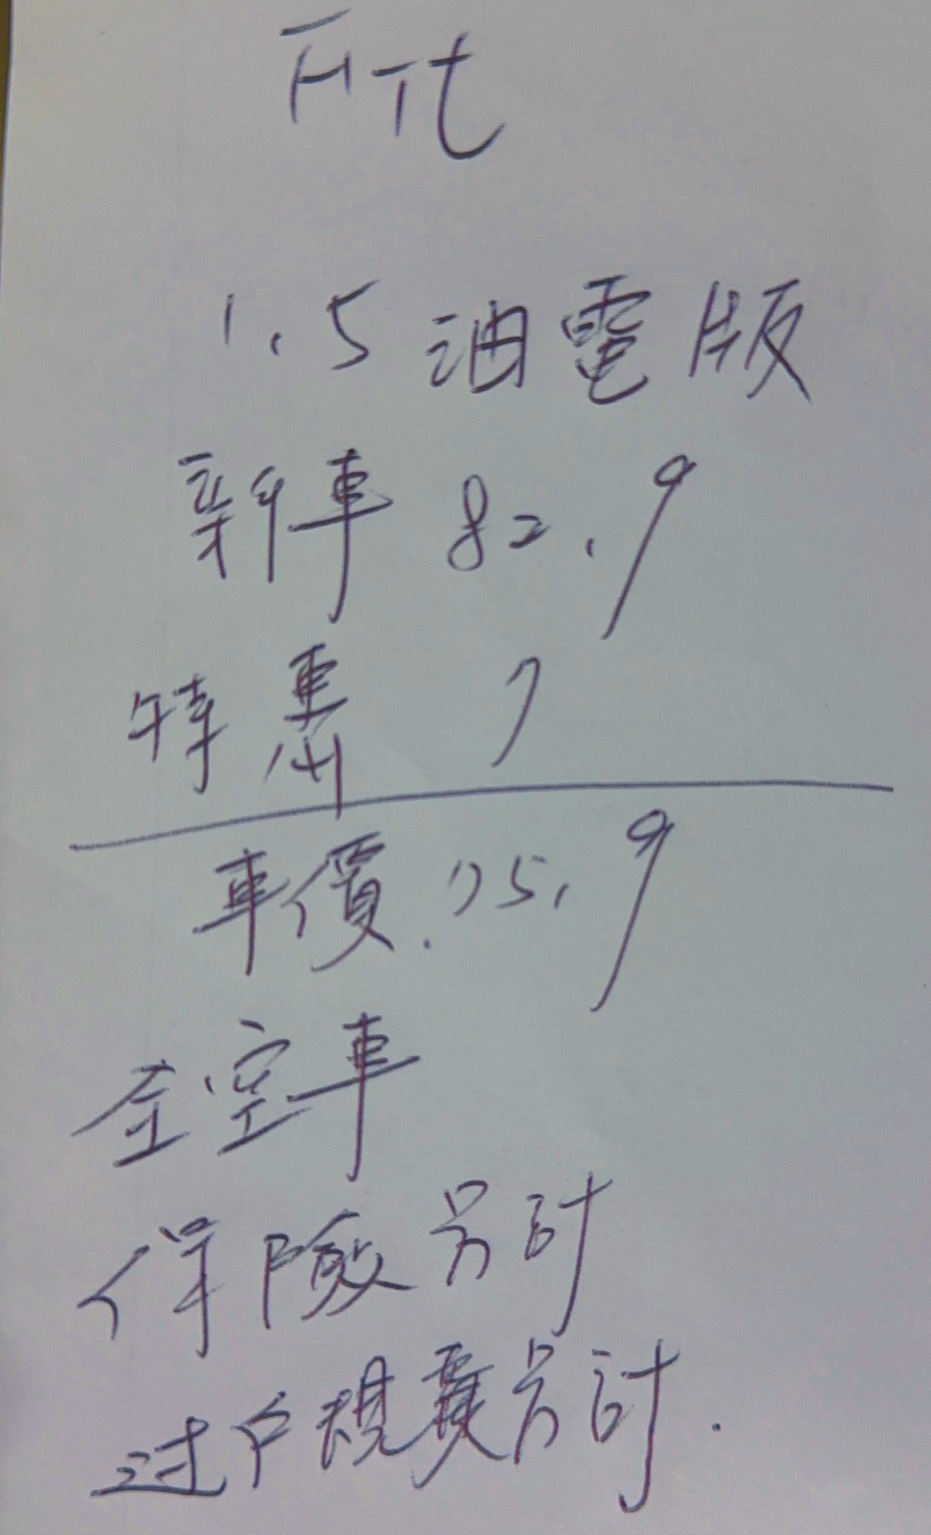 Fit
1.5油電版
新車 82.9
特惠 7
車價.75.9
全空車
保險另計
过户規費另計.